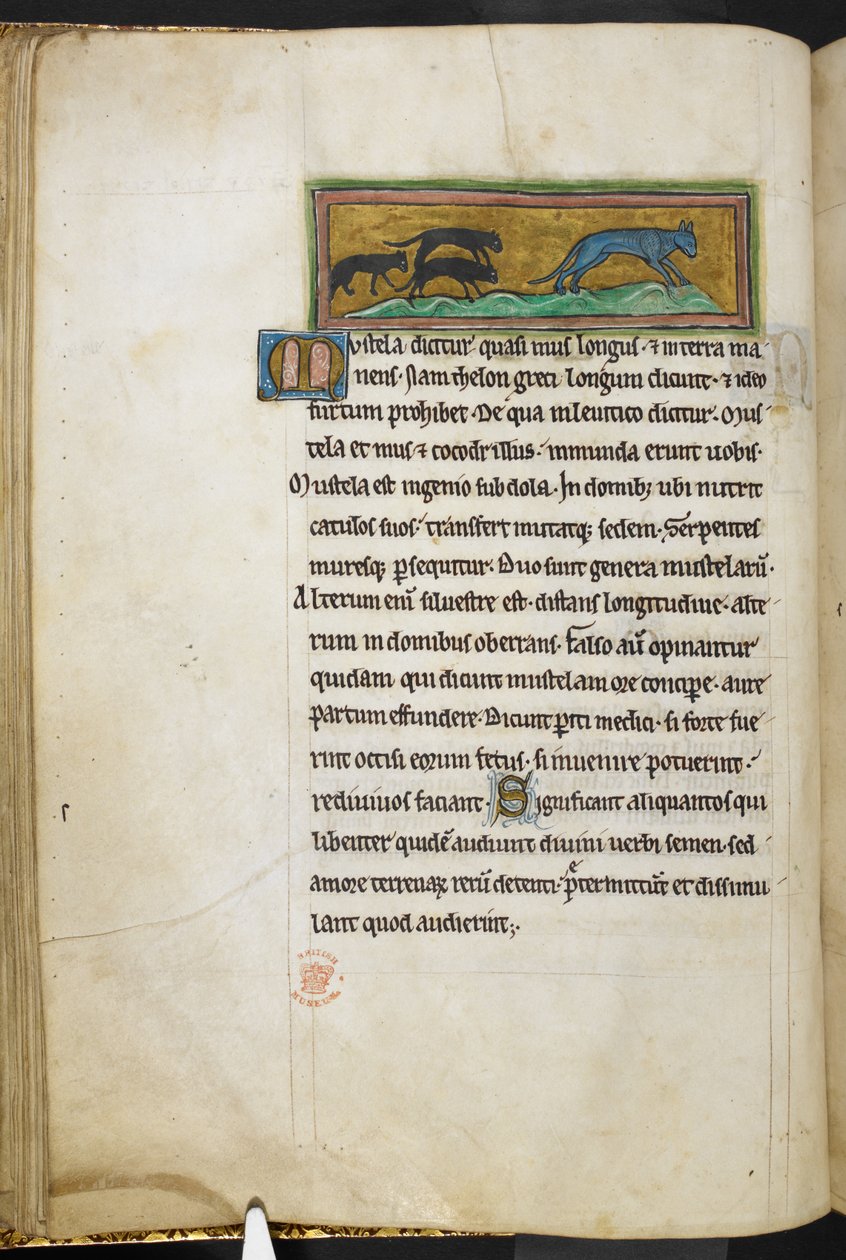 Mustela dicitur quasi mus longus · ⁊ in terra ma
nens · Nam thelon greci longum dicunt · ⁊ ideo
furtum prohibet · De qua in leuitico dicitur · Mus
tela et mus ⁊ cocodrillus · inmunda erunt uobis ·
Mustela est ingenio subdola · In domibꝫ ubi nutrit
catulos suos · transfert mutatqꝫ sedem · Serpentes
muresqꝫ ꝑsequitur · Duo sunt genera mustelarū ·
Alterum eni᷑ siluestre est · distans longitudine · alte
rum in domibus oberrans · Falso aū opinantur
quidam qui dicunt mustelam ore concipe · aure
partum effundere · Dicunt ꝑiti medici · si forte fue
rint occisi eorum fetus · si inuenire potuerint ·
rediuiuos faciant · Significant aliquantos qui
libenter quidē audiunt diuini uerbi semen · sed
amore terrenaꝝ rerū detenti · p̄termittūt et dissimu
lant quod audierint ;·
BRITISH
MUSEUM